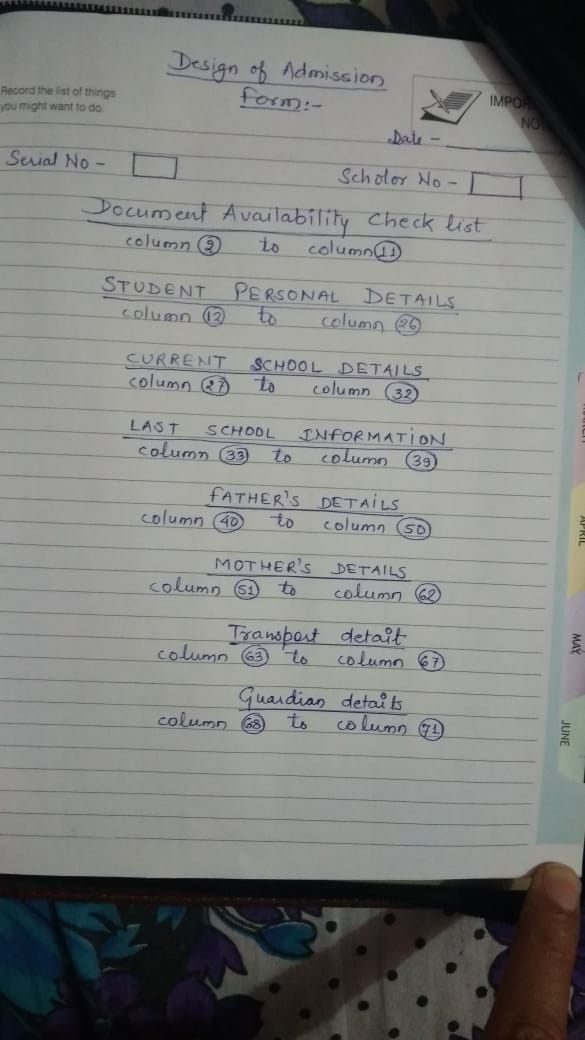 Design of Admission
Form:-
Record the list of things
you might want to do.
IMPOR
NO
Date -
Serial No -
Scholor No -
Document Availability Check list
column 2 to column 11
STUDENT PERSONAL DETAILS
column 12 to column 26
CURRENT SCHOOL DETAILS
column 27 to column 32
LAST SCHOOL INFORMATION
column 33 to column 39
FATHER'S DETAILS
column 40 to column 50
MOTHER'S DETAILS
column 51 to column 62
Transport detail
column 63 to column 67
Guardian details
column 68 to column 71
APRIL
MAY
JUNE